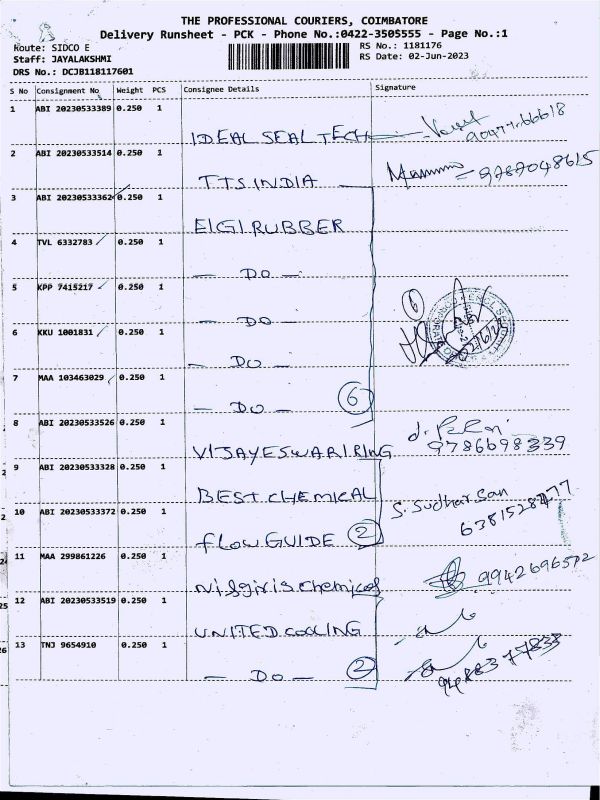 THE PROFESSIONAL COURIERS, COIMBATORE
Delivery Runsheet - PCK - Phone No.:0422-3505555 - Page No.:1
Route: SIDCO E
RS No.: 1181176
Staff: JAYALAKSHMI
RS Date: 02-Jun-2023
DRS No.: DCJB118117601
S No Consignment No Weight PCS Consignee Details Signature
1 ABI 20230533389 0.250 1
IDEAL SEAL TECH
2 ABI 20230533514 0.250 1
TTS INDIA 9787048615
3 ABI 20230533362 0.250 1
ElGI RUBBER
4 TVL 6332783 0.250 1
— DO —
5 KPP 7415217 0.250 1
— DO —
6 KKU 1001831 0.250 1
— DO —
7 MAA 103463029 0.250 1
— DO — 6
8 ABI 20230533526 0.250 1
VIJAYESWARI RING 9786698339
9 ABI 20230533328 0.250 1
BEST CHEMICAL
10 ABI 20230533372 0.250 1 S. Sudharsan
flow GUIDE 2
11 MAA 299861226 0.250 1
Nilgiris chemical 9942696572
12 ABI 20230533519 0.250 1
UNITED cooLING
13 TNJ 9654910 0.250 1
— DO — 2